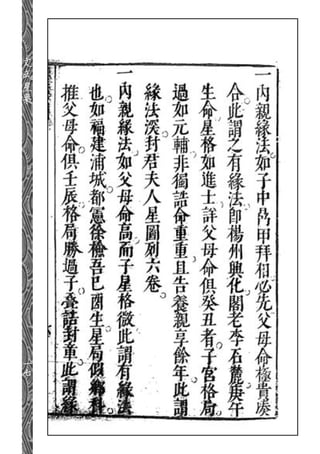 一內親緣法如子中鼎甲拜相必先父母命極貴湊
合此謂之有緣法卽楊州興化閣老李石麓庚午
生命星格如進士詳父母命俱癸丑者子宮格局
過如元輔非獨誥命重重且告養親享餘年此謂
緣法深封君夫人星圖列六卷
一內親緣法如父母命高而子星格微此謂有緣法
也如福建浦城都憲徐檢吾已酉生星局似鄉科
推父母命俱壬辰格局勝過子疊誥封重此謂緣
七